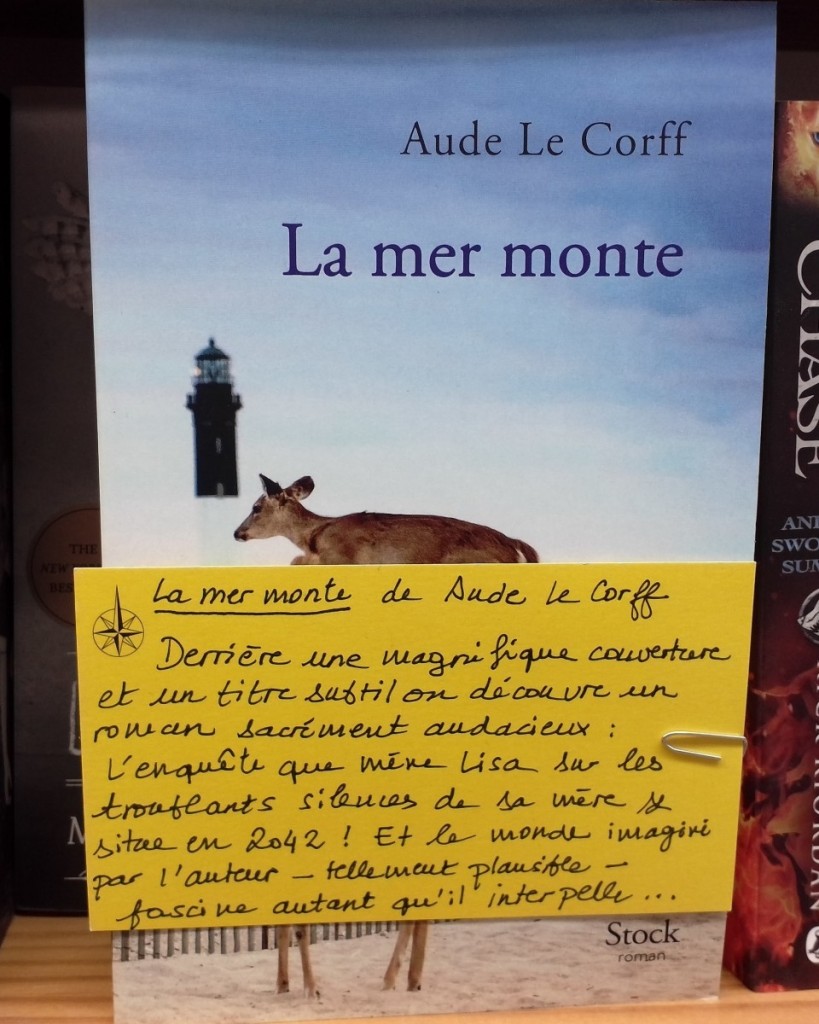 Aude Le Corff
La mer monte
La mer monte de Aude Le Corff
Derrière une magnifique couverture
et un titre subtil on découvre un
roman sacrément audacieux :
L'enquête que mène Lisa sur les
troublants silences de sa mère se
situe en 2042 ! Et le monde imaginé
par l'auteur – tellement plausible –
fascine autant qu'il interpelle...
Stock
roman
THE
NEW
BES
CHASE
AND
SWO
SUM
RICK RIORDAN